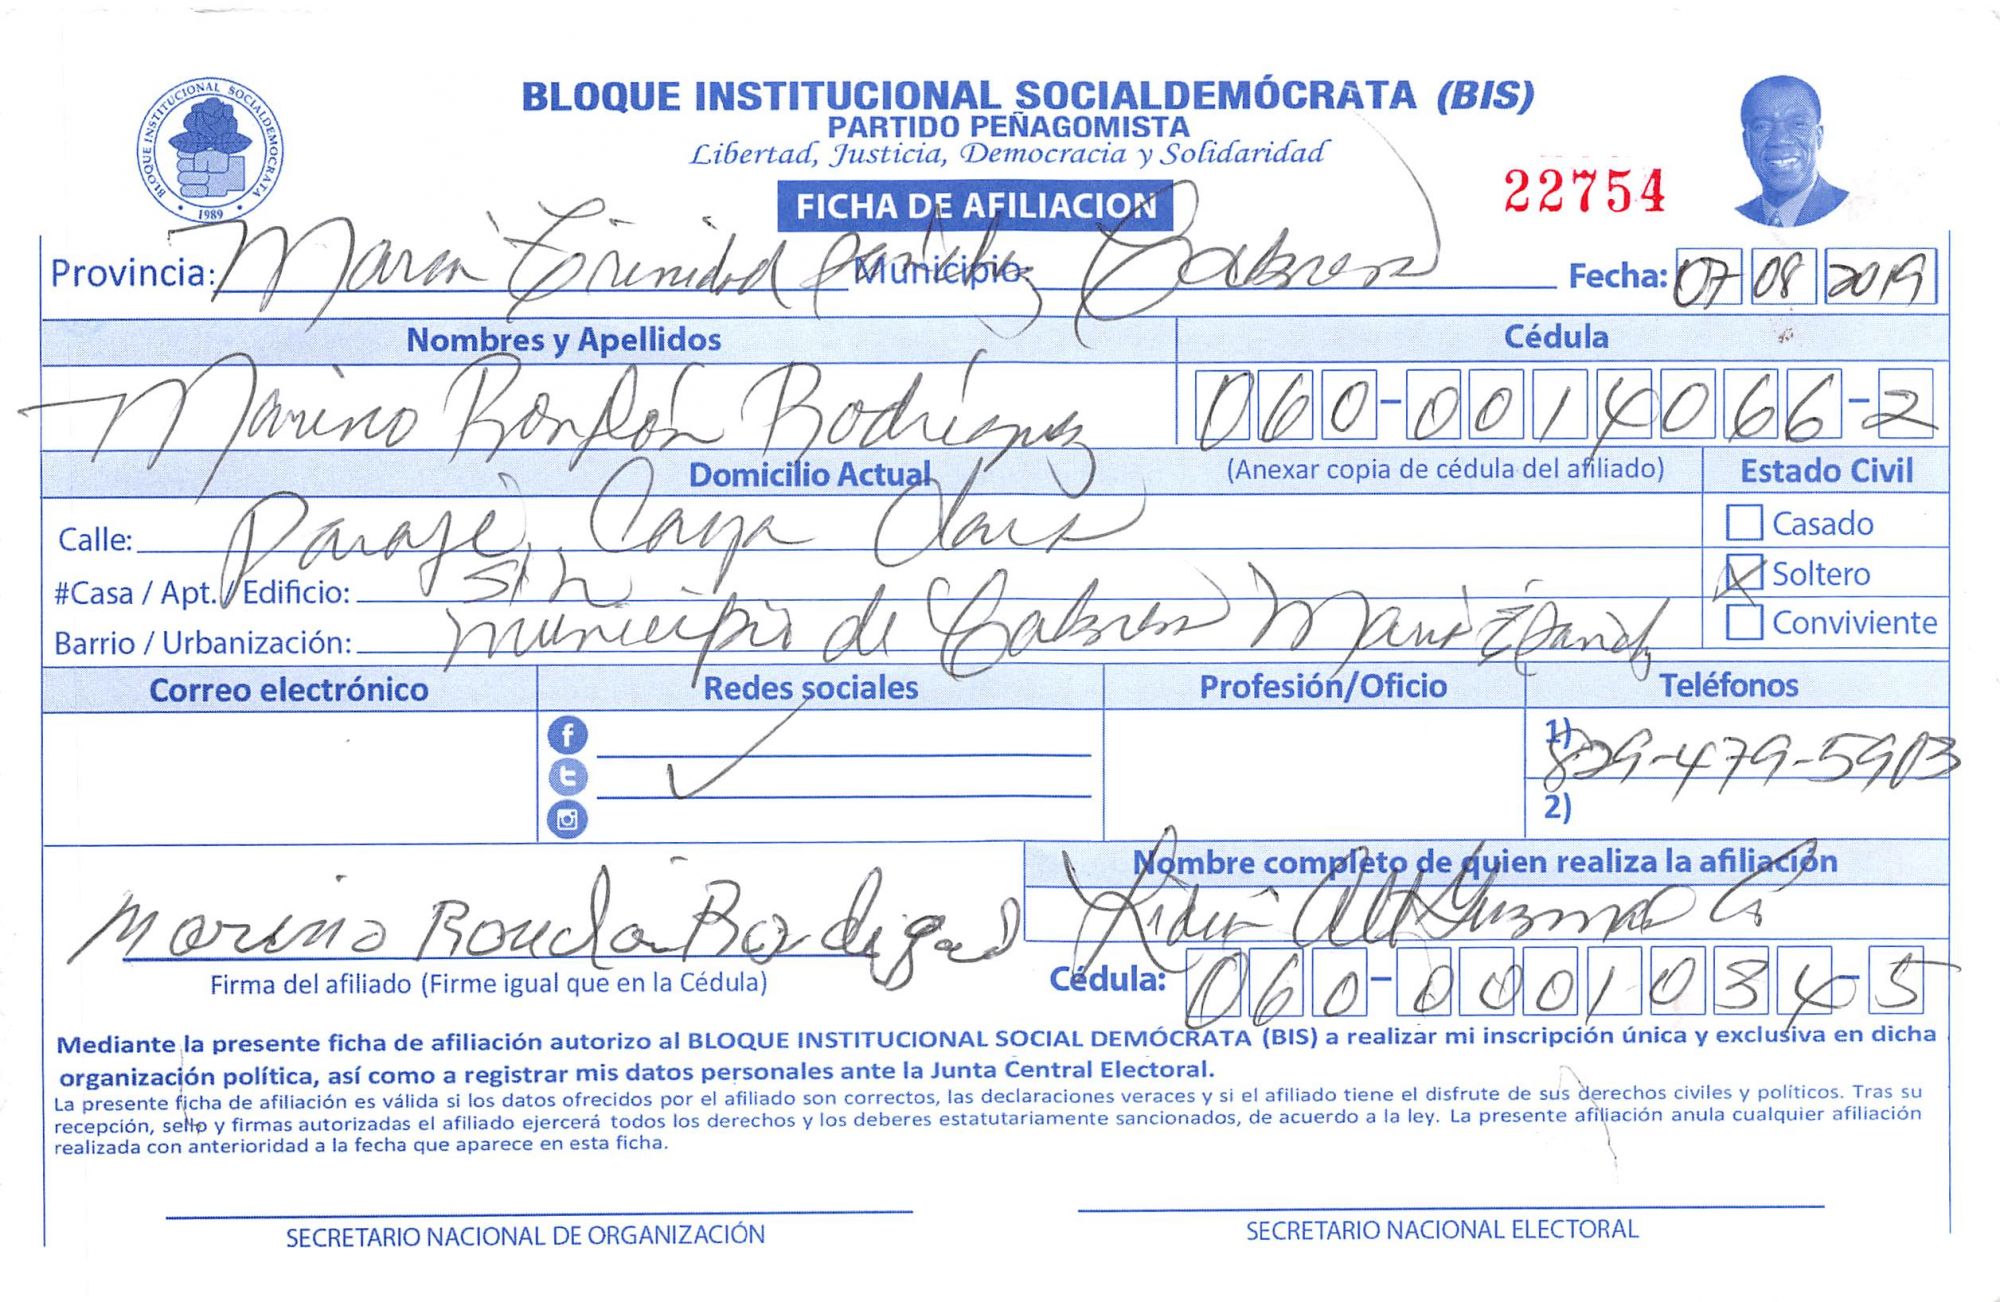 BLOQUE INSTITUCIONAL SOCIALDEMOCRATA
1989
BLOQUE INSTITUCIONAL SOCIALDEMÓCRATA (BIS)
PARTIDO PEÑAGOMISTA
Libertad, Justicia, Democracia y Solidaridad
FICHA DE AFILIACION
22754
Provincia: Maria Trinidad Sanchez Municipio: Cabrera Fecha: 07 08 2019
Nombres y Apellidos Cédula
Marino Rondón Rodríguez 060-0014066-2
Domicilio Actual (Anexar copia de cédula del afiliado) Estado Civil
Calle: Paraje Caya Clara Casado
#Casa / Apt. / Edificio: S/N Soltero
Barrio / Urbanización: municipio de Cabrera Maria T Sanch Conviviente
Correo electrónico Redes sociales Profesión/Oficio Teléfonos
1) 829-479-5903
2)
Nombre completo de quien realiza la afiliación
Marino Rondon Rodigues Guzman G
Firma del afiliado (Firme igual que en la Cédula) Cédula: 060-0001034-5
Mediante la presente ficha de afiliación autorizo al BLOQUE INSTITUCIONAL SOCIAL DEMÓCRATA (BIS) a realizar mi inscripción única y exclusiva en dicha
organización política, así como a registrar mis datos personales ante la Junta Central Electoral.
La presente ficha de afiliación es válida si los datos ofrecidos por el afiliado son correctos, las declaraciones veraces y si el afiliado tiene el disfrute de sus derechos civiles y políticos. Tras su
recepción, sello y firmas autorizadas el afiliado ejercerá todos los derechos y los deberes estatutariamente sancionados, de acuerdo a la ley. La presente afiliación anula cualquier afiliación
realizada con anterioridad a la fecha que aparece en esta ficha.
SECRETARIO NACIONAL DE ORGANIZACIÓN SECRETARIO NACIONAL ELECTORAL